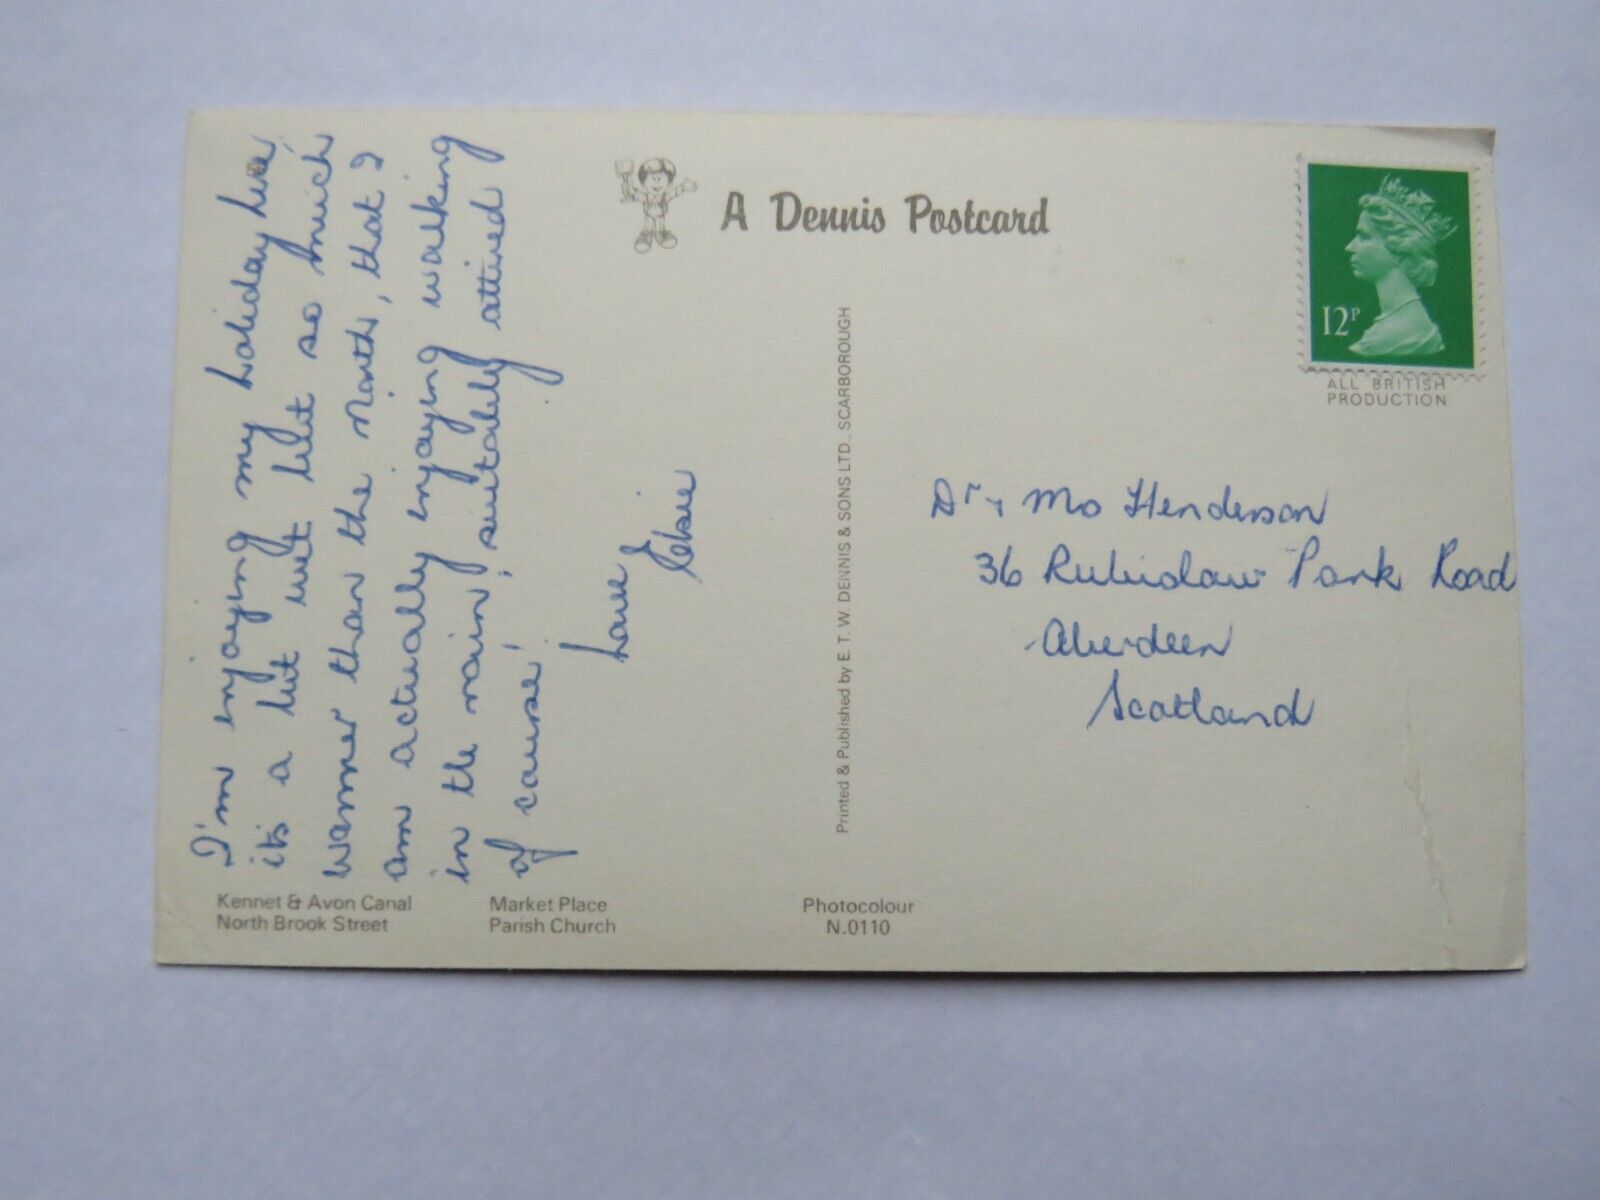 I'm enjoying my holiday here,
it's a bit wet but so much
warmer than the North, that I
am actually enjoying walking
in the rain, suitably attired
of course!
Love
Elsie
A Dennis Postcard
Printed & Published by E. T. W. DENNIS & SONS LTD., SCARBOROUGH
12P
ALL BRITISH
PRODUCTION
Dr & Mrs Henderson
36 Rubislaw Park Road
Aberdeen
Scotland
Kennet & Avon Canal
North Brook Street
Market Place
Parish Church
Photocolour
N.0110